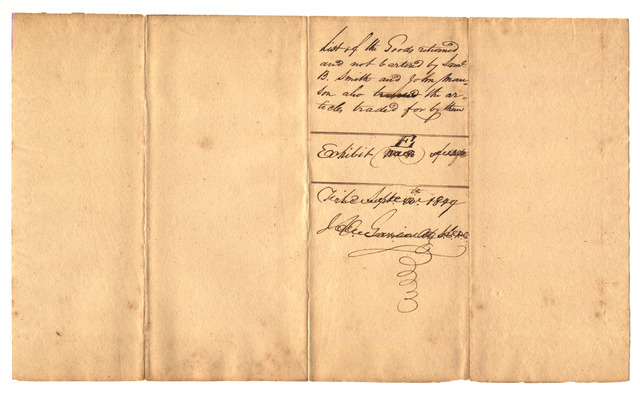 List of the Goods returned
and not bartered by Saml
B. Smith and John Man-
son also traded the ar-
ticles traded for by them
Exhibit E
Filed Septr 1849